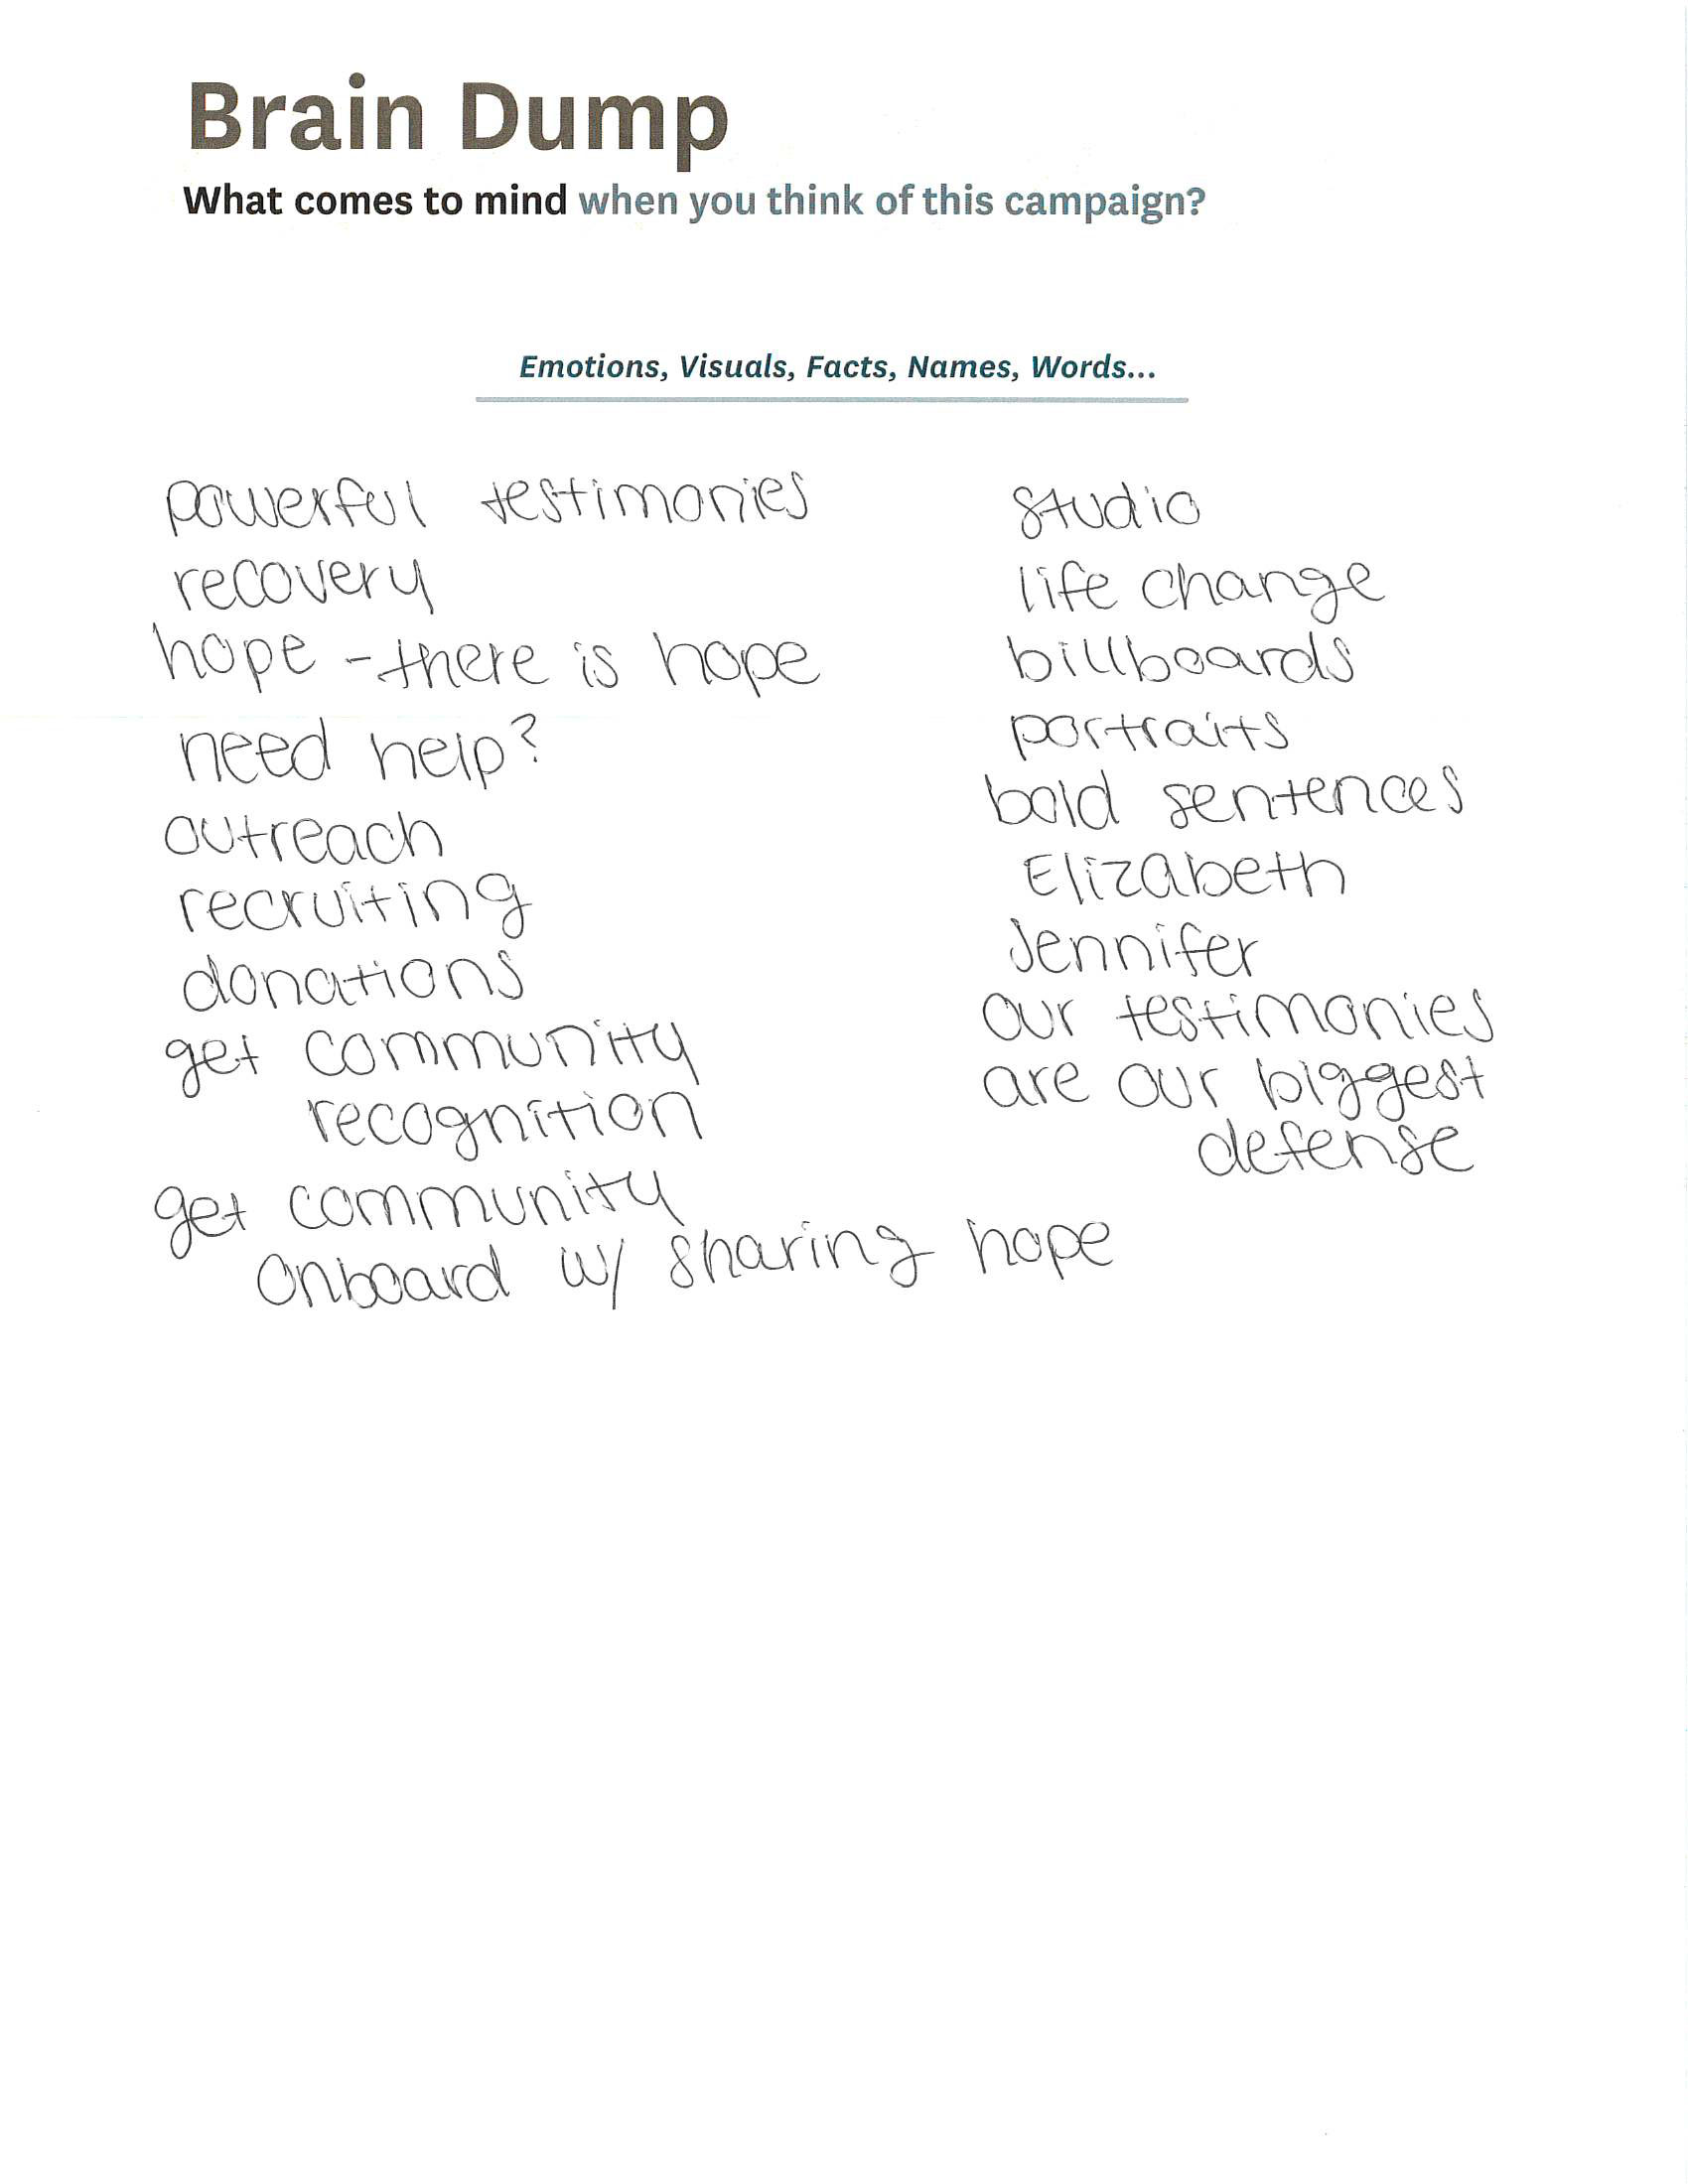 Brain Dump
What comes to mind when you think of this campaign?
Emotions, Visuals, Facts, Names, Words...
powerful testimonies
recovery
hope - there is hope
need help?
outreach
recruiting
donations
get community
recognition
get community
onboard w/ sharing hope
studio
life change
billboards
portraits
bold sentences
Elizabeth
Jennifer
our testimonies
are our biggest
defense